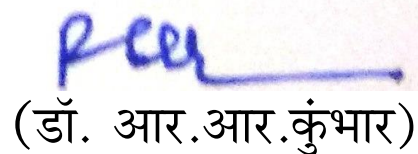 (डॉ. आर.आर.कुंभार)